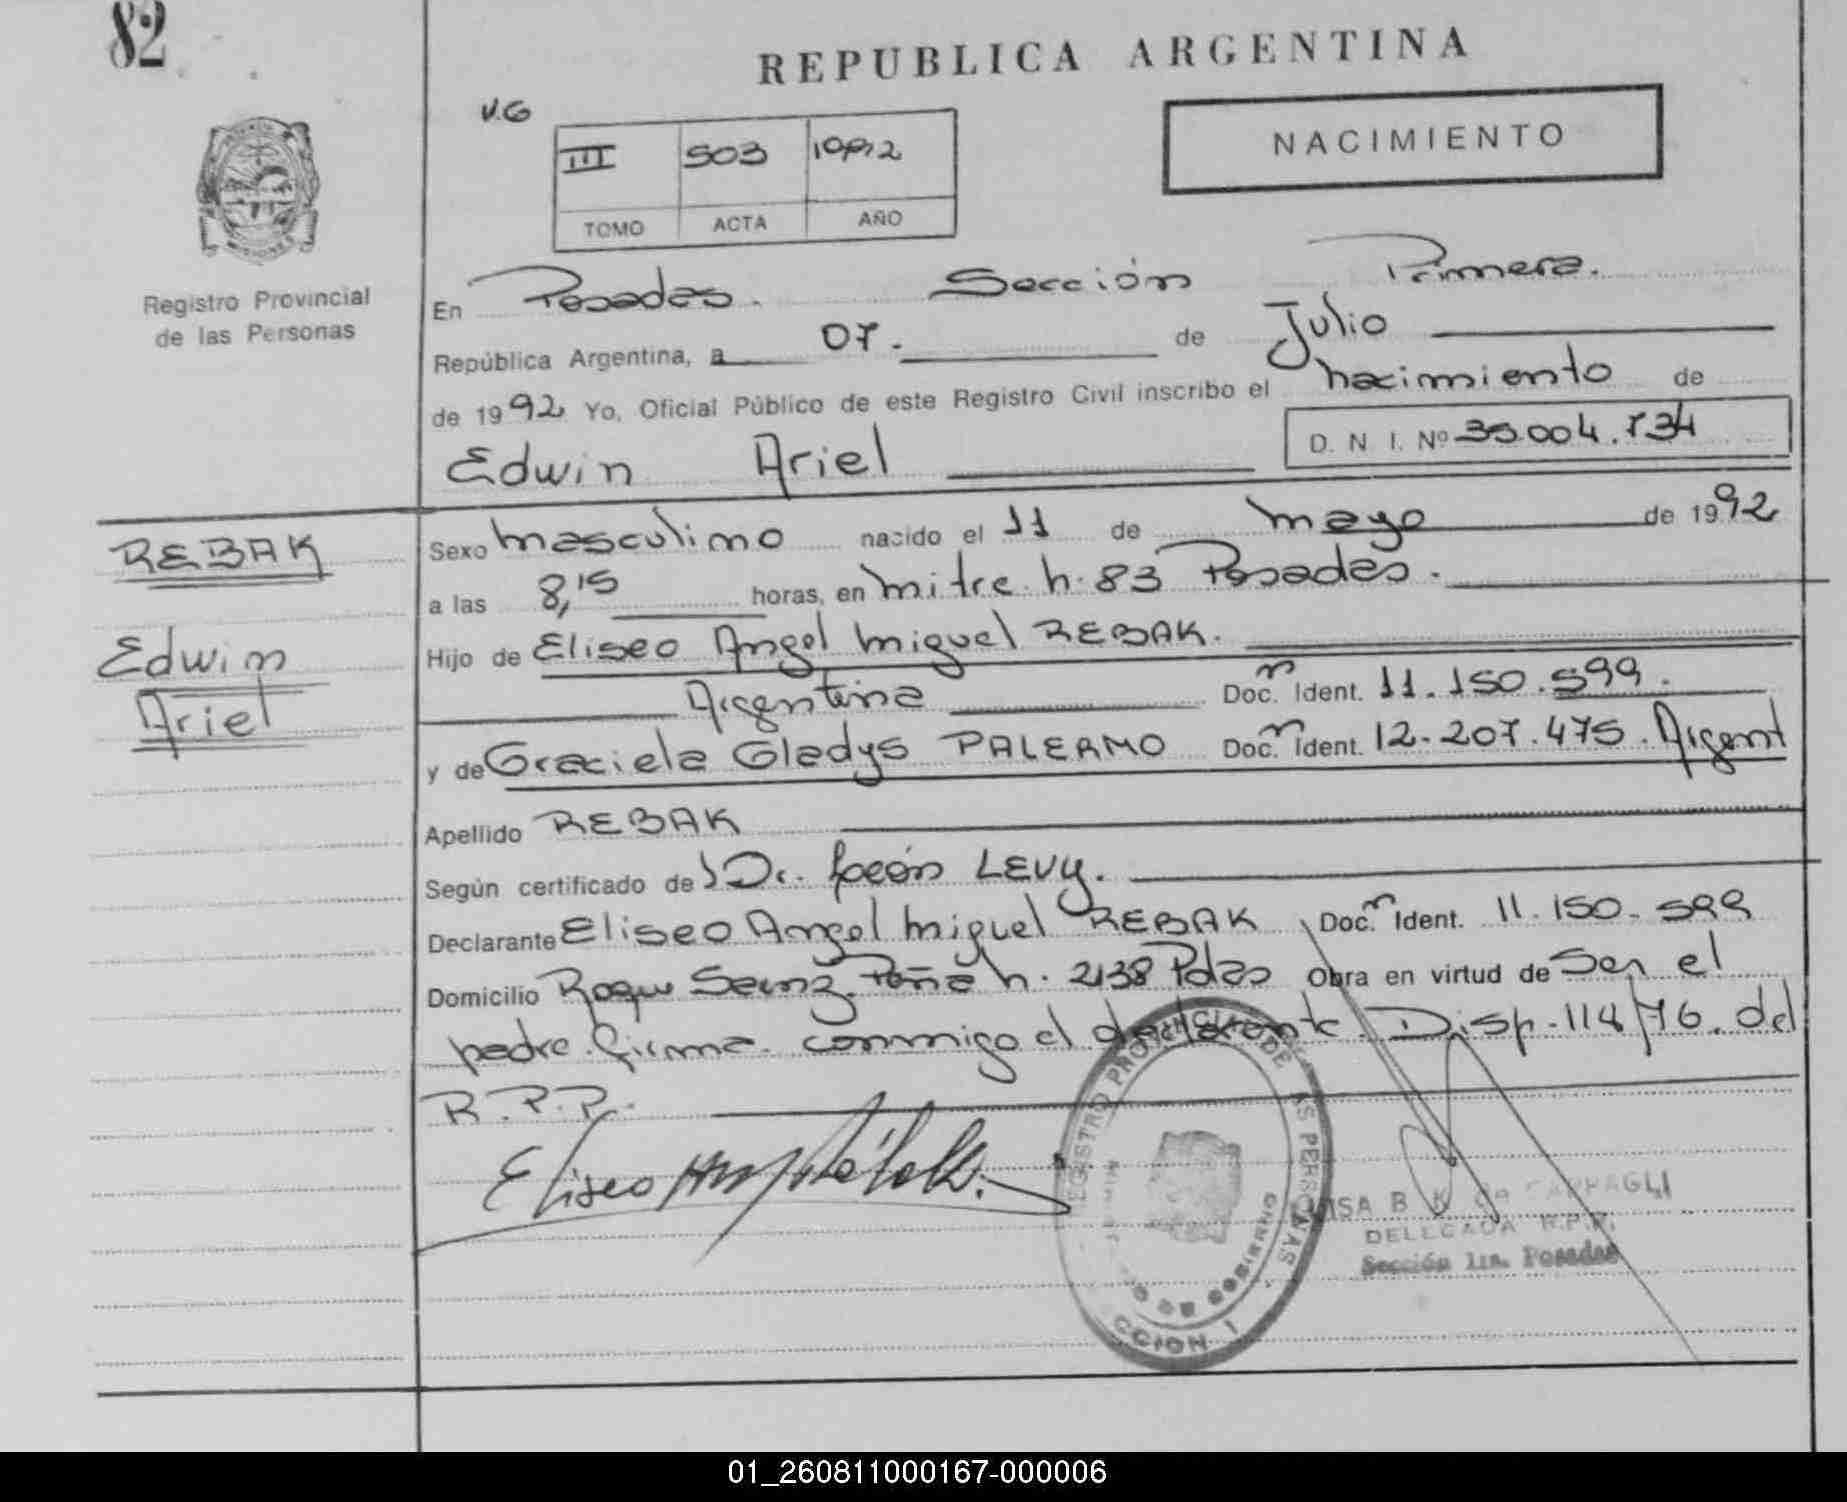 82
REPUBLICA ARGENTINA
V.G
III 503 1992
TOMO ACTA AÑO
NACIMIENTO
MISIONES
Registro Provincial
de las Personas
En Posadas. Sección Primera.
República Argentina, a 07. de Julio
de 1992 Yo, Oficial Público de este Registro Civil inscribo el nacimiento de
Edwin Ariel
D. N. I. Nº
REBAK
Edwin
Ariel
Sexo masculino nacido el 11 de mayo de 1992
a las 8,15 horas, en mitre n. 83 Posadas.
Hijo de Eliseo Angel Miguel REBAK.
Argentina Doc. Ident. 11.150.599.
y de Graciela Gladys PALERMO Doc. Ident. 12.207.475. Argent
Apellido REBAK
Según certificado de Dr. León LEVY.
Declarante Eliseo Angel Miguel REBAK Doc. Ident. 11.150.599
Domicilio Roque Saenz Peña n. 2138 Pdas Obra en virtud de Ser el
padre. firma conmigo el declarante. Disp. 114/76. del
R.P.P.
Eliseo
REGISTRO PROVINCIAL DE LAS PERSONAS
DE GOBIERNO
CCION 1
DELEGADA R.P.P.
Sección 1ra. Posadas
01_260811000167-000006